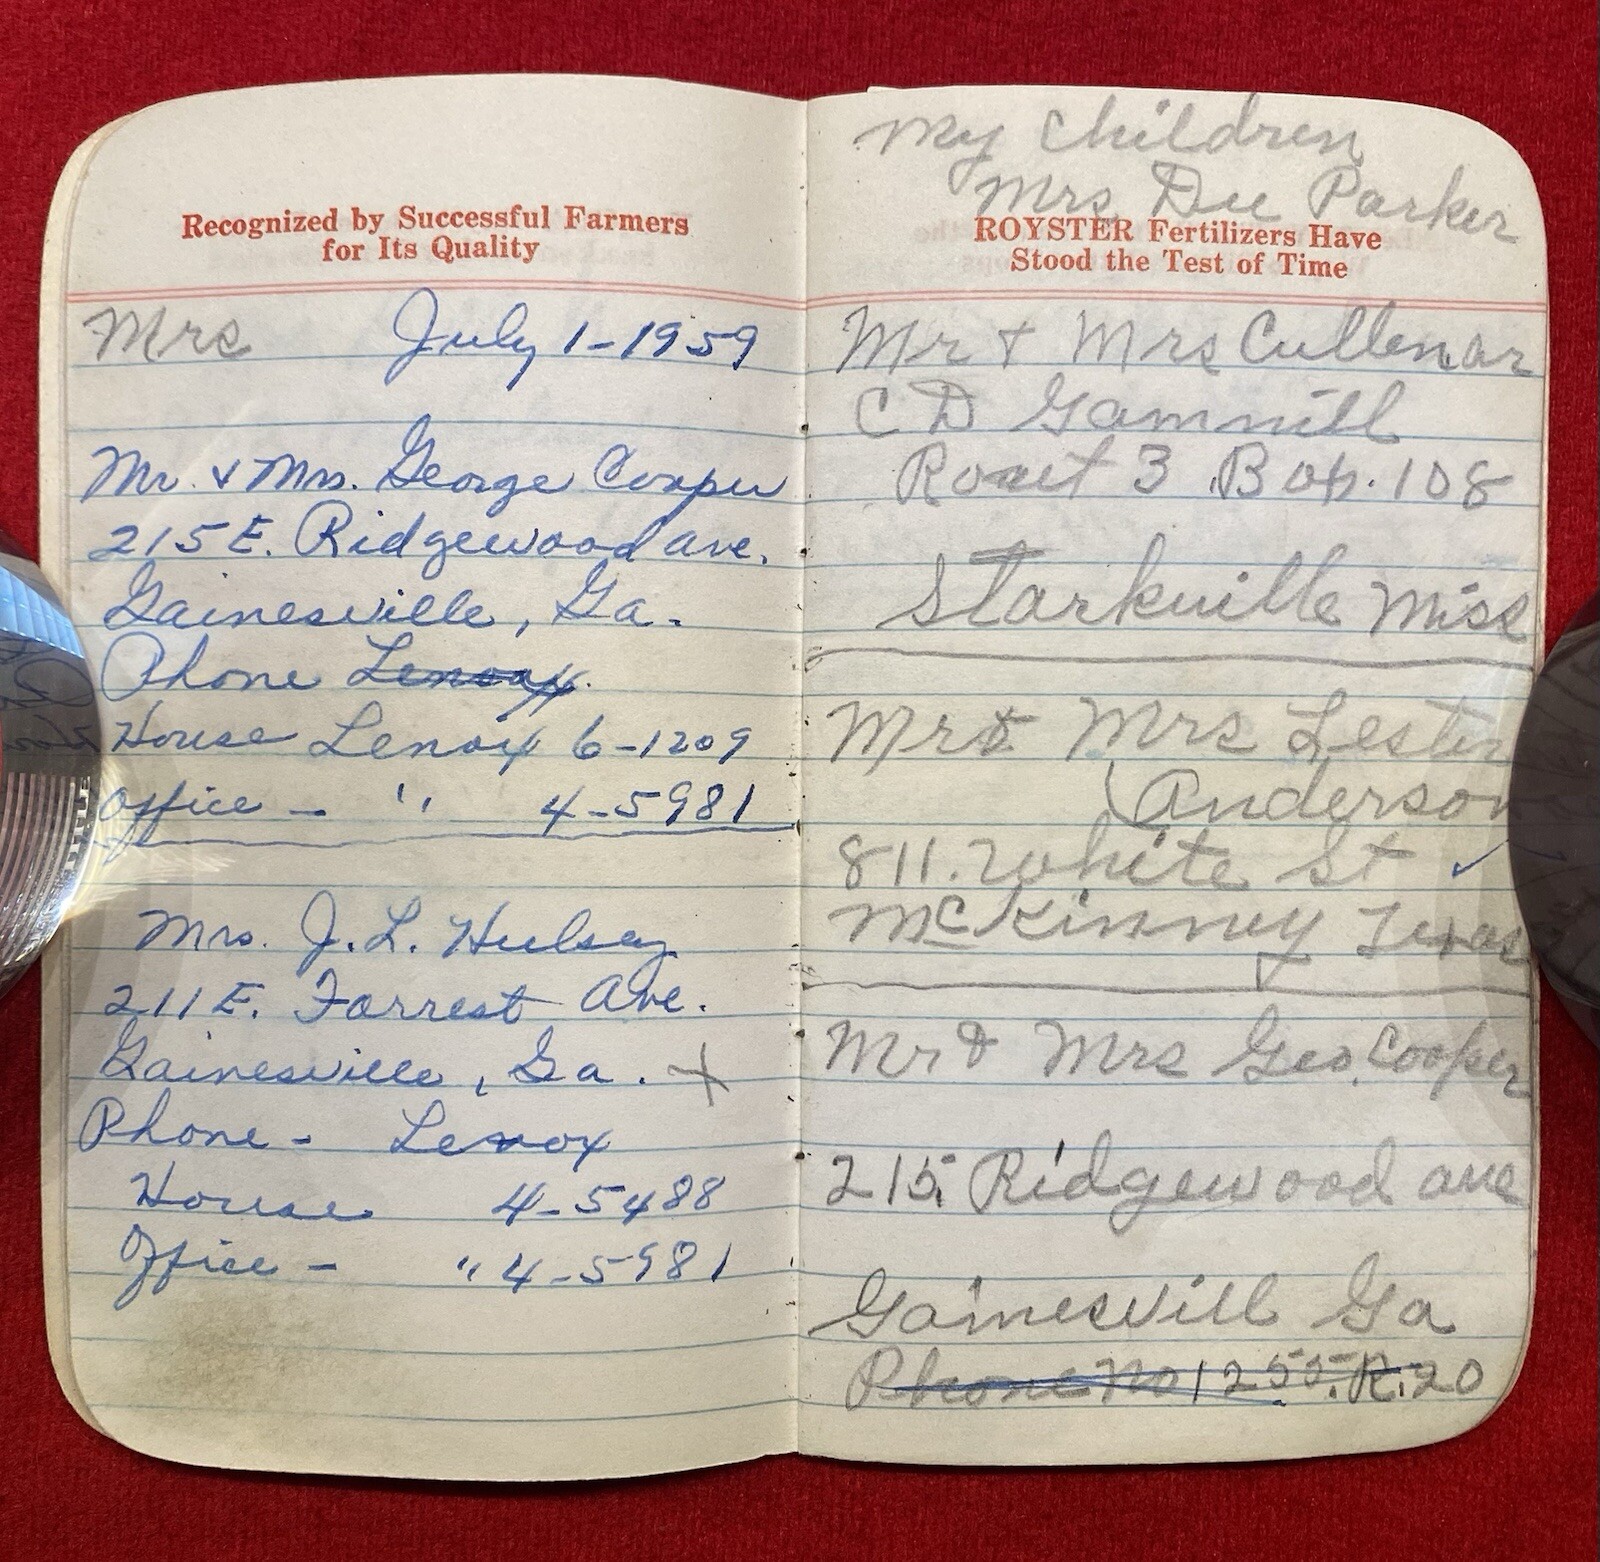 Recognized by Successful Farmers
for Its Quality
Mrs July 1-1959
Mr. & Mrs. George Cooper
215 E. Ridgewood ave.
Gainesville, Ga.
Phone Lenox
House Lenox 6-1209
Office - " 4-5981
Mrs. J. L. Hulsey
211 E. Forrest Ave.
Gainesville, Ga. X
Phone - Lenox
House 4-5488
Office - " 4-5981
My Children
Mrs Dee Parker
ROYSTER Fertilizers Have
Stood the Test of Time
Mr + Mrs
C D Gammill
Rout 3 Box. 108
Starkville Miss
Mr & Mrs Lester
Anderson
811. White St ✓
McKinney Texas
Mr & Mrs Geo. Cooper
215 Ridgewood ave
Gainesvill Ga
Phone No 1255.R.20